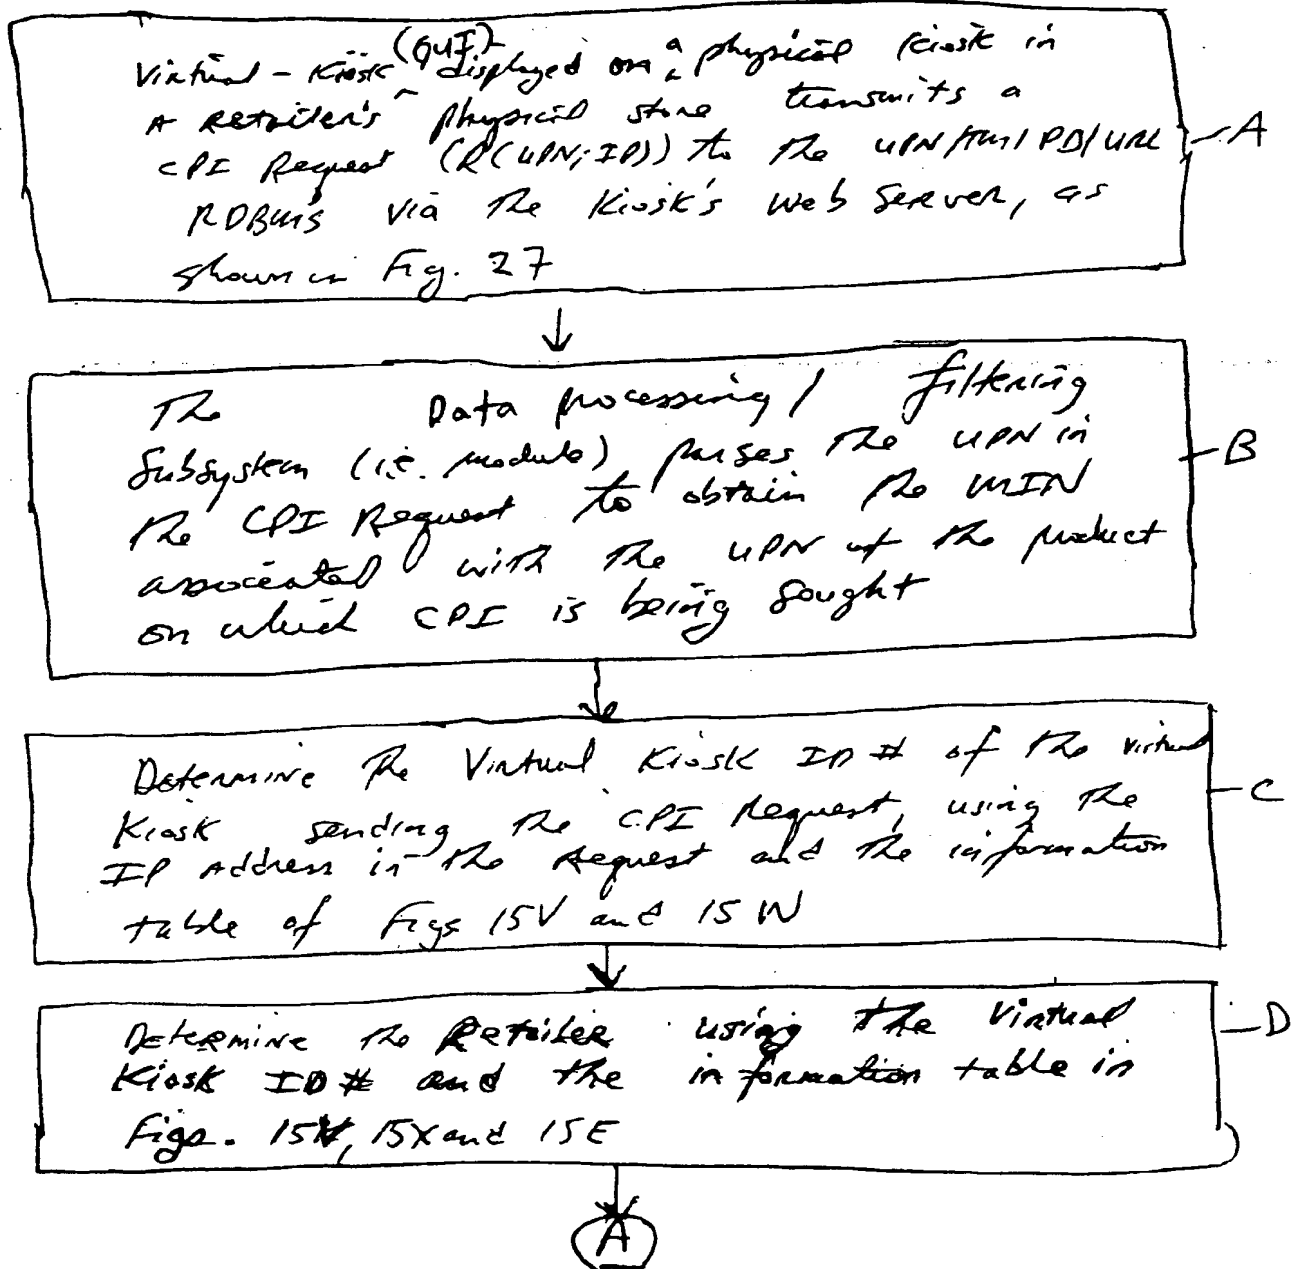 (GUI)
Virtual-Kiosk displayed on a physical Kiosk in
A Retailer's physical store transmits a
CPI Request (R(UPN; IP)) to the UPN/TM/PD/URL
RDBMS via the Kiosk's Web Server, as
shown in Fig. 27
A
The Data processing / filtering
Subsystem (i.e. module) parses the UPN in
the CPI Request to obtain the MIN
associated with the UPN of the product
on which CPI is being sought
B
Determine the Virtual Kiosk ID # of the virtual
Kiosk sending the CPI Request, using the
IP Address in the Request and the information
table of Figs 15V and 15W
C
Determine the Retailer using the Virtual
Kiosk ID # and the information table in
Figs. 15 , 15X and 15E
D
A